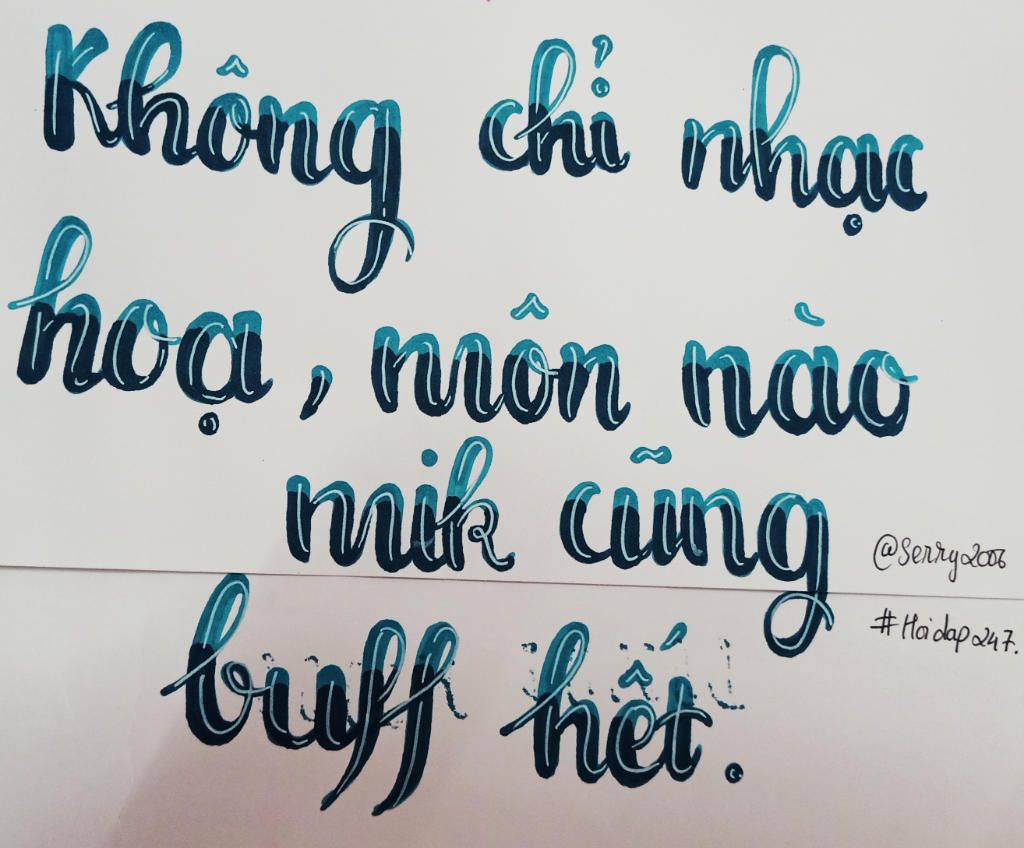 Không chỉ nhạc
hoạ, môn nào
mik cũng
@Serry2006
buff hết.
#Hoidap247.